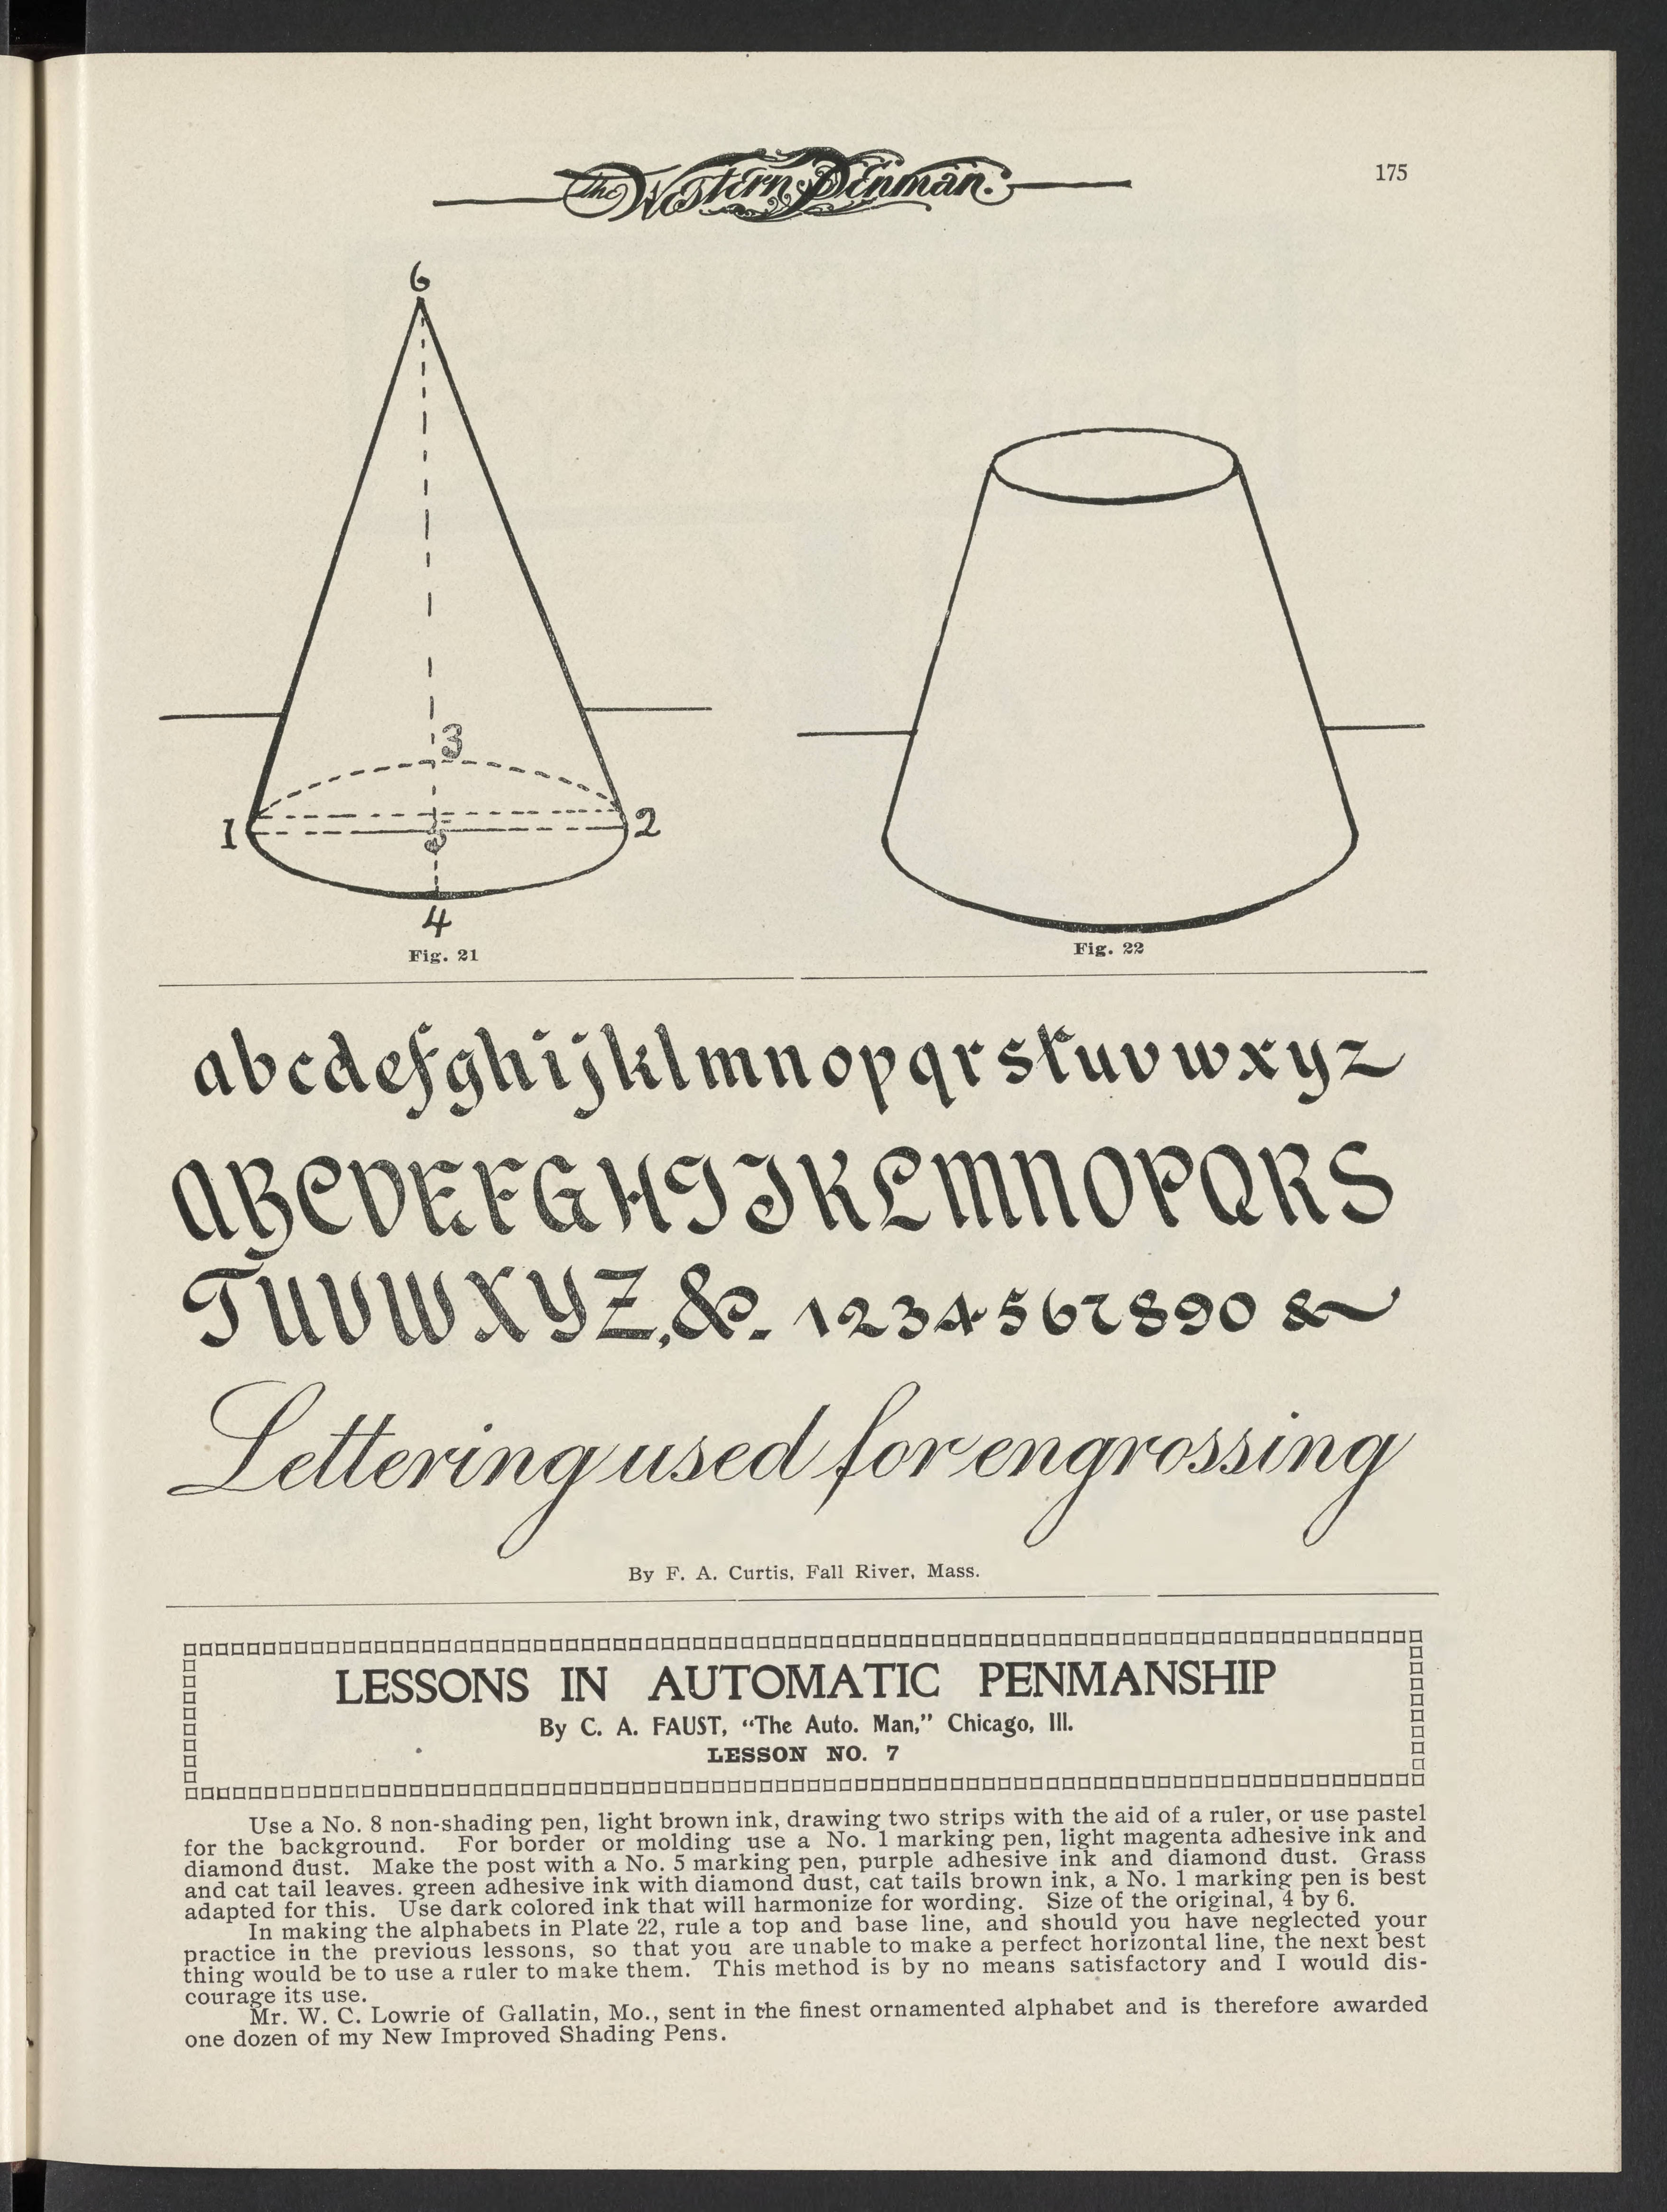 The Western Penman.
175
6
3
1
5
2
4
Fig. 21
Fig. 22
abcdefghijklmnopqrstuvwxyz
ABCDEFGHIJKLMNOPQRS
TUVWXYZ,&. 1234567890 &
Lettering used for engrossing
By F. A. Curtis, Fall River, Mass.
LESSONS IN AUTOMATIC PENMANSHIP
By C. A. FAUST, “The Auto. Man,” Chicago, Ill.
LESSON NO. 7
Use a No. 8 non-shading pen, light brown ink, drawing two strips with the aid of a ruler, or use pastel
for the background. For border or molding use a No. 1 marking pen, light magenta adhesive ink and
diamond dust. Make the post with a No. 5 marking pen, purple adhesive ink and diamond dust. Grass
and cat tail leaves. green adhesive ink with diamond dust, cat tails brown ink, a No. 1 marking pen is best
adapted for this. Use dark colored ink that will harmonize for wording. Size of the original, 4 by 6.
In making the alphabets in Plate 22, rule a top and base line, and should you have neglected your
practice in the previous lessons, so that you are unable to make a perfect horizontal line, the next best
thing would be to use a ruler to make them. This method is by no means satisfactory and I would dis-
courage its use.
Mr. W. C. Lowrie of Gallatin, Mo., sent in the finest ornamented alphabet and is therefore awarded
one dozen of my New Improved Shading Pens.